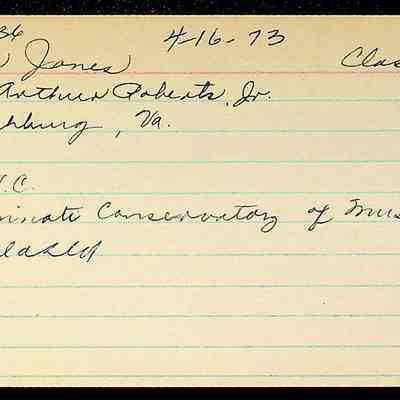 36 4-16-73
Jones Clas
Arthur Roberts, Jr.
hburg, Va.
.C.
innati Conservatory of Mus